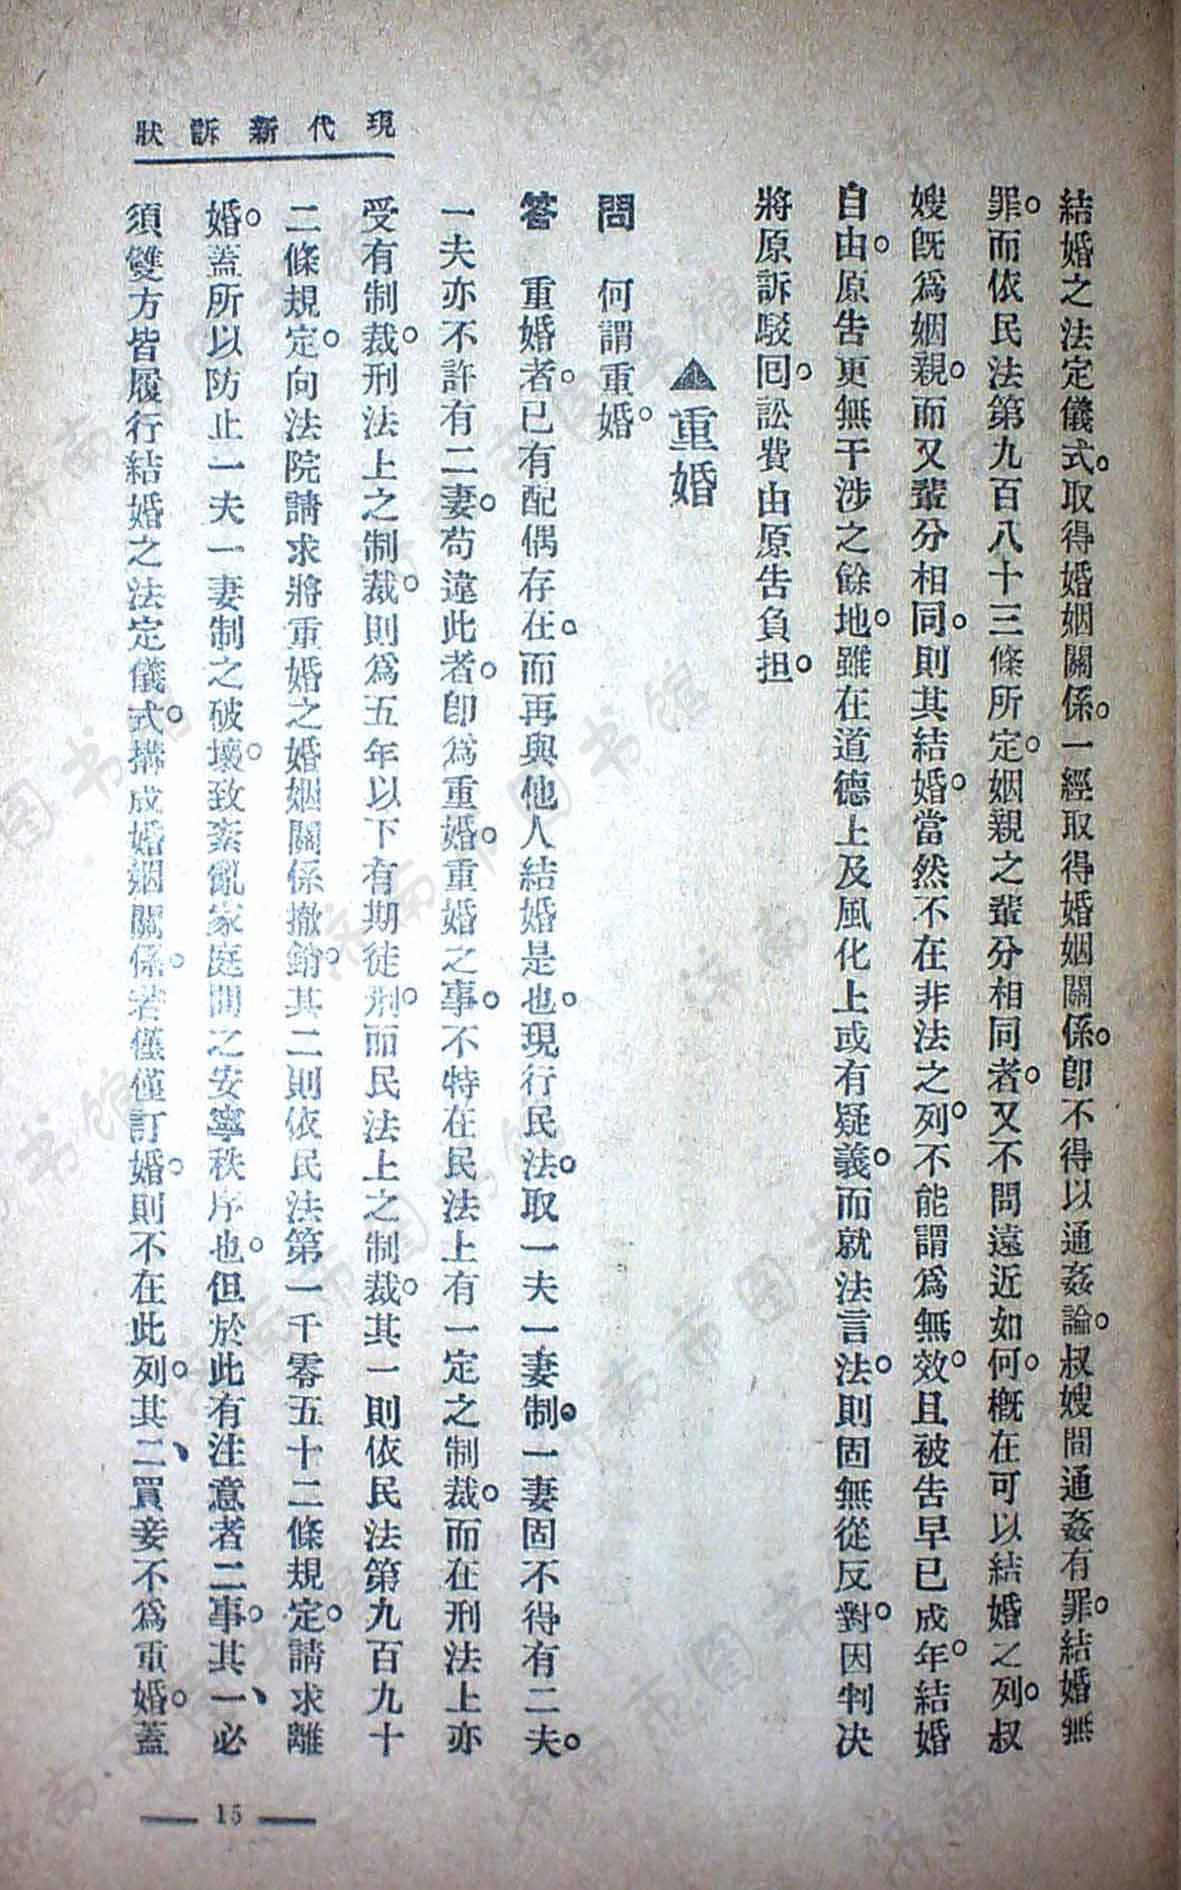 現代新訴狀
結婚之法定儀式。取得婚姻關係。一經取得婚姻關係。卽不得以通姦論。叔嫂間通姦有罪。結婚無
罪。而依民法第九百八十三條所定。姻親之輩分相同者。又不問遠近如何。槪在可以結婚之列。叔
嫂旣爲姻親。而又輩分相同。則其結婚。當然不在非法之列。不能謂爲無效。且被告早已成年。結婚
自由。原告更無干涉之餘地。雖在道德上及風化上或有疑義。而就法言法。則固無從反對。因判决
將原訴駁回。訟費由原告負担。
▲重婚
問　何謂重婚。
答　重婚者。已有配偶存在。而再與他人結婚是也。現行民法。取一夫一妻制。一妻固不得有二夫。
一夫亦不許有二妻。苟違此者。卽爲重婚。重婚之事。不特在民法上有一定之制裁。而在刑法上亦
受有制裁。刑法上之制裁。則爲五年以下有期徒刑。而民法上之制裁。其一則依民法第九百九十
二條規定。向法院請求將重婚之婚姻關係撤銷。其二則依民法第一千零五十二條規定。請求離
婚。蓋所以防止一夫一妻制之破壞。致紊亂家庭間之安寧秩序也。但於此有注意者二事。其一、必
須雙方皆履行結婚之法定儀式。搆成婚姻關係。若僅僅訂婚。則不在此列。其二、買妾不爲重婚。蓋
15
济南市图书馆